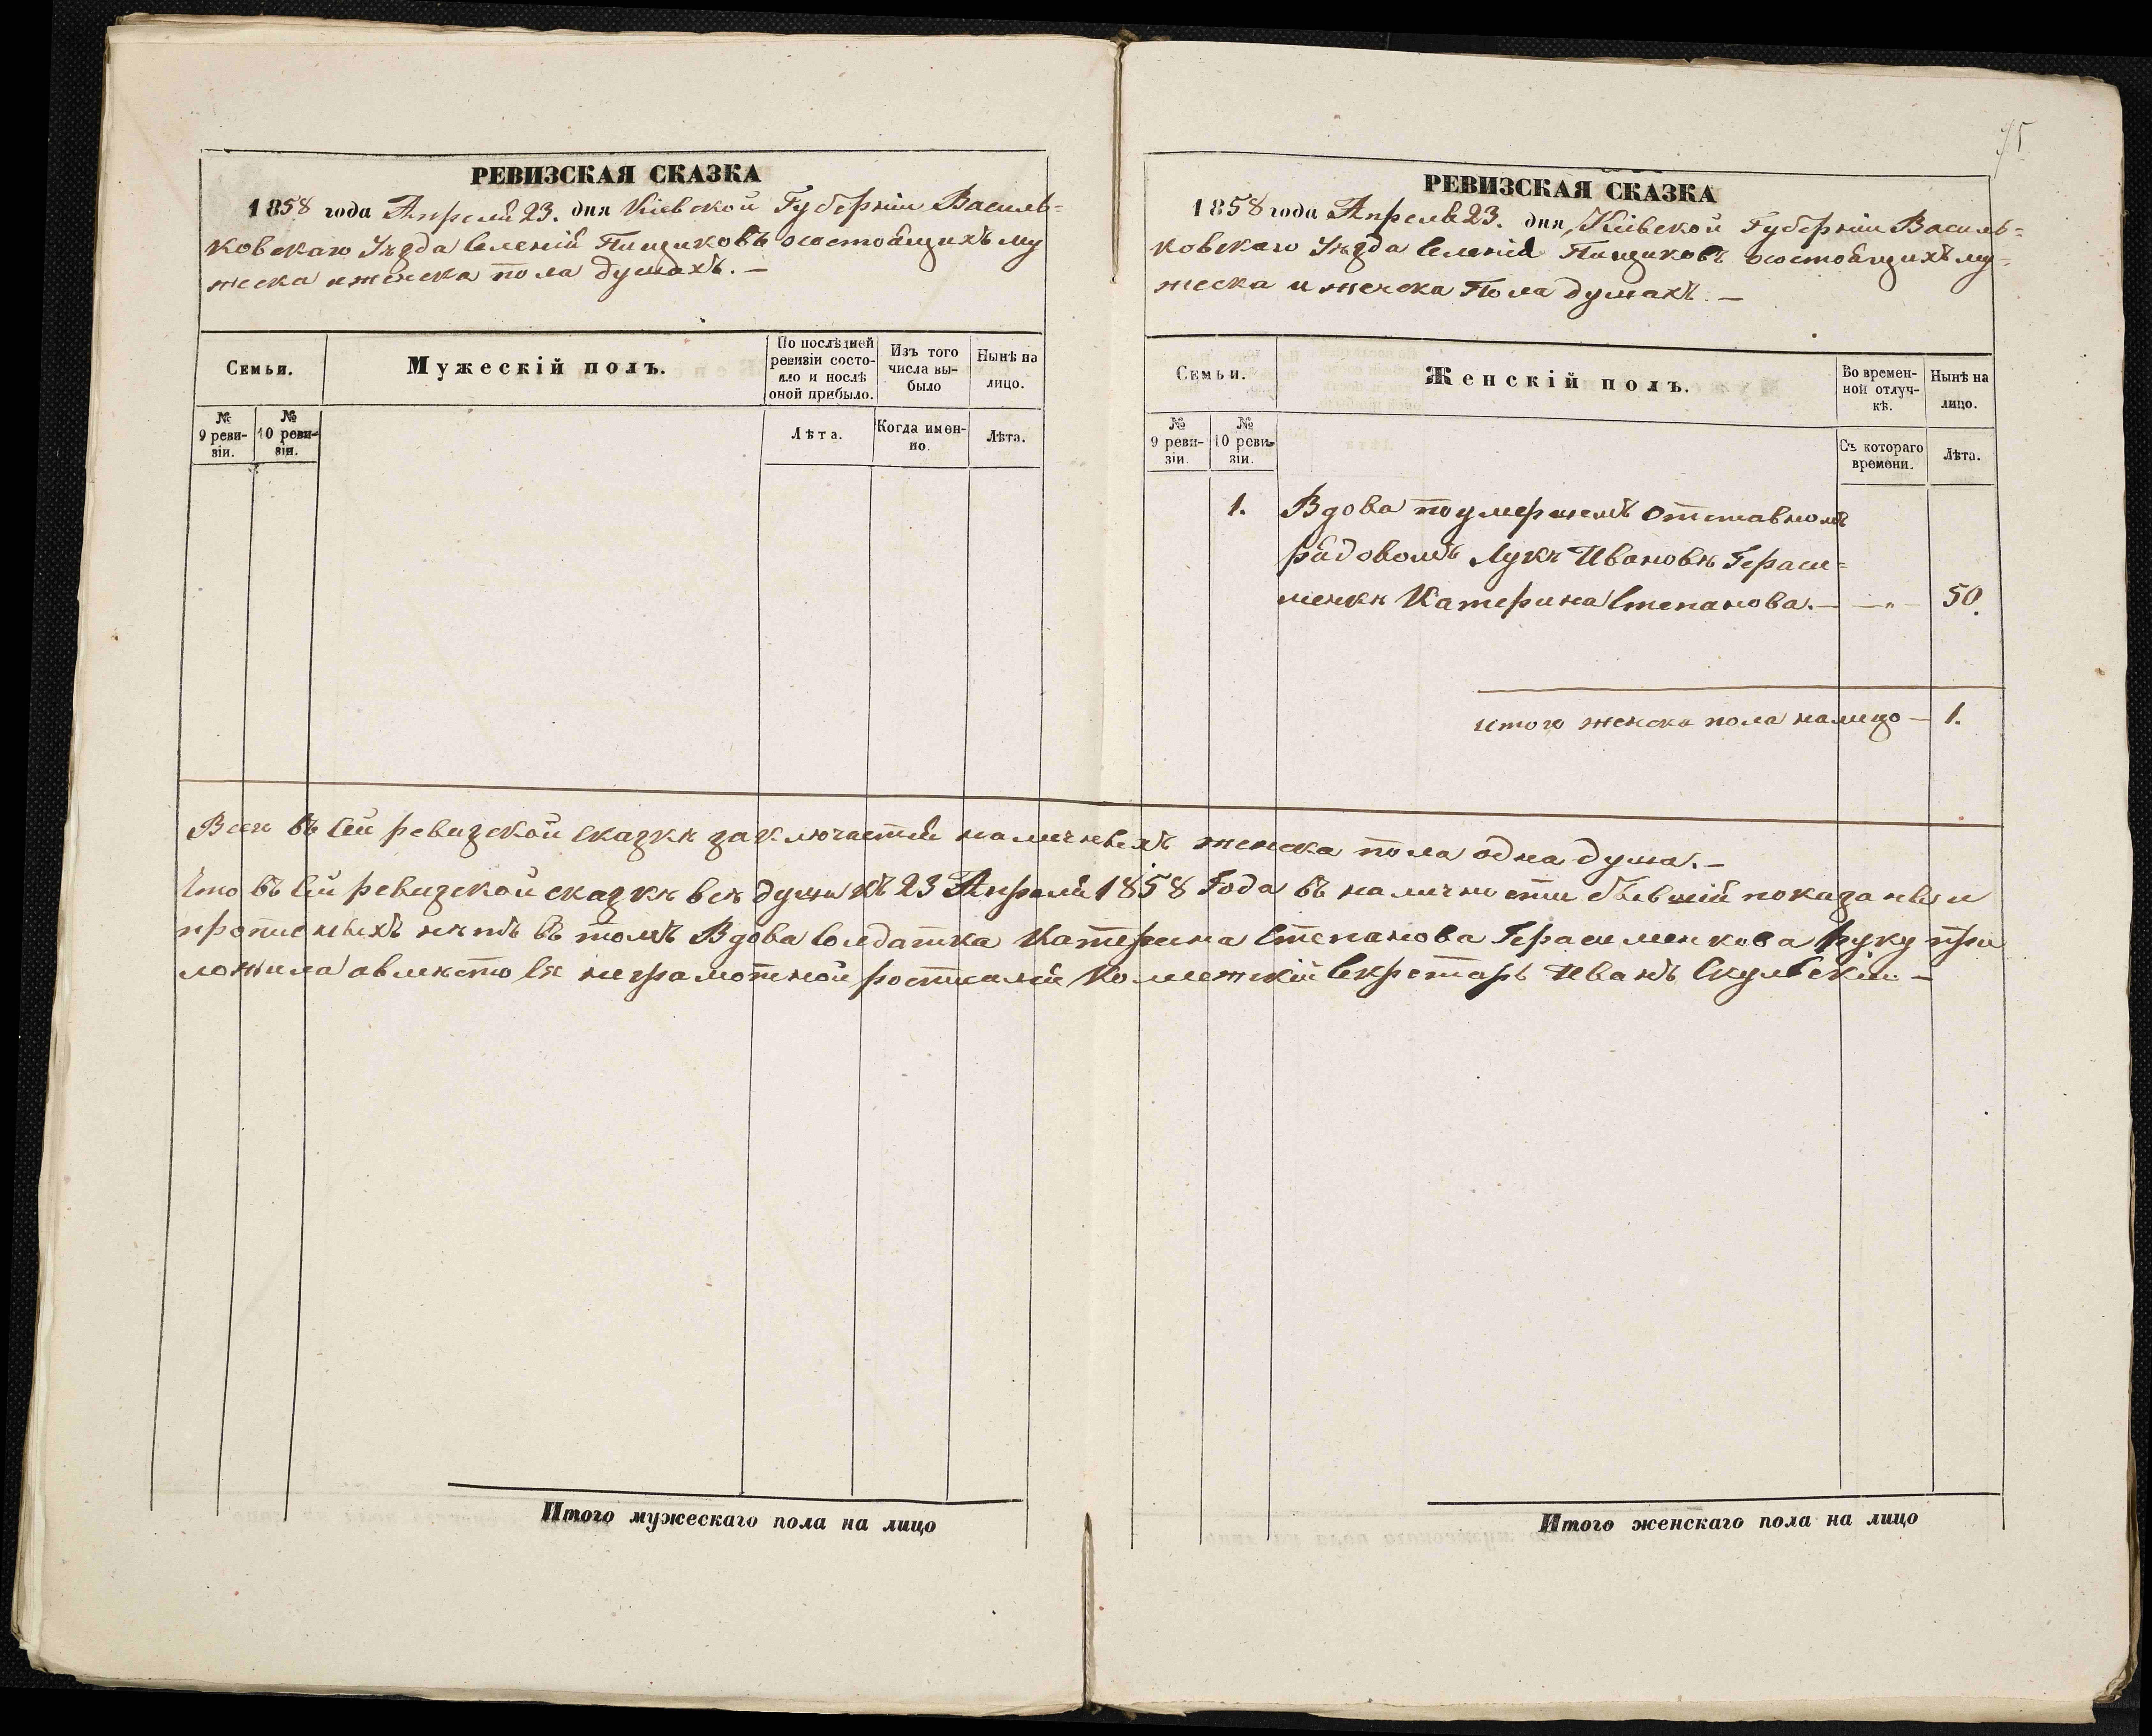 РЕВИЗСКАЯ СКАЗКА
1858 года Апреля 23. дня Кіевской Губерніи Василь=
ковскаго Уѣзда Селенія Пищиковъ о состоящихъ му
жеска и женска пола душахъ. —
Семьи.
Мужескій полъ.
По послѣдней
ревизіи состо-
яло и послѣ
оной прибыло.
Изъ того
числа вы-
было
Нынѣ на
лицо.
№
9 реви-
зіи.
№
10 реви-
зіи.
Лѣта.
Когда имен-
но.
Лѣта.
Итого мужескаго пола на лицо
75
РЕВИЗСКАЯ СКАЗКА
1858 года Апреля 23. дня, Кіевской Губерніи Василь=
ковскаго Уѣзда Селенія Пищиковъ о состоящихъ му=
жеска и женска Пола душахъ. —
Семьи.
Женскій полъ.
Во времен-
ной отлуч-
кѣ.
Нынѣ на
лицо.
№
9 реви-
зіи.
№
10 реви-
зіи.
Съ котораго
времени.
Лѣта.
1. Вдова по умершемъ отставномъ
рядовомъ Лукѣ Ивановѣ Гераси=
менкѣ Катерина Степанова. — — „ — 50.
итого женска пола налицо — 1.
Всей въ сей ревизской сказкѣ заключается наличныхъ женска пола одна душа. —
Что въ сей ревизской сказкѣ всѣ души къ 23 Апреля 1858 Года въ наличности бывшія показаны и
прописныхъ нѣтъ въ томъ Вдова Солдатка Катерина Степанова Герасименкова руку при
ложила а вместо Ея неграмотной росписался Колежскій Секретарь Иванъ Скульскій —
Итого женскаго пола на лицо